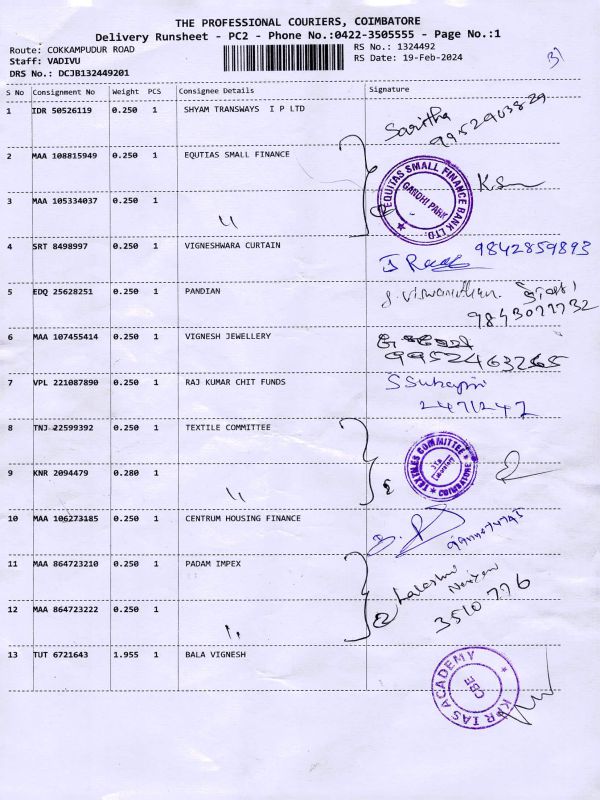 THE PROFESSIONAL COURIERS, COIMBATORE
Delivery Runsheet - PC2 - Phone No.:0422-3505555 - Page No.:1
Route: COKKAMPUDUR ROAD
RS No.: 1324492
Staff: VADIVU
RS Date: 19-Feb-2024
31
DRS No.: DCJB132449201
S No Consignment No Weight PCS Consignee Details Signature
1 IDR 50526119 0.250 1 SHYAM TRANSWAYS I P LTD Saritha
9952903829
2 MAA 108815949 0.250 1 EQUTIAS SMALL FINANCE
EQUITAS SMALL FINANCE BANK LTD.
GANDHI PARK
3 MAA 105334037 0.250 1 "
4 SRT 8498997 0.250 1 VIGNESHWARA CURTAIN 9842859893
5 EDQ 25628251 0.250 1 PANDIAN J. Viswanathan.
9843077732
6 MAA 107455414 0.250 1 VIGNESH JEWELLERY
9952463265
7 VPL 221087890 0.250 1 RAJ KUMAR CHIT FUNDS
2471247
8 TNJ 22599392 0.250 1 TEXTILE COMMITTEE
TEXTILES COMMITTEE
COIMBATORE
9 KNR 2094479 0.280 1 "
10 MAA 106273185 0.250 1 CENTRUM HOUSING FINANCE
11 MAA 864723210 0.250 1 PADAM IMPEX
12 MAA 864723222 0.250 1 " 2
3510 776
13 TUT 6721643 1.955 1 BALA VIGNESH
KPR IAS ACADEMY
CBE